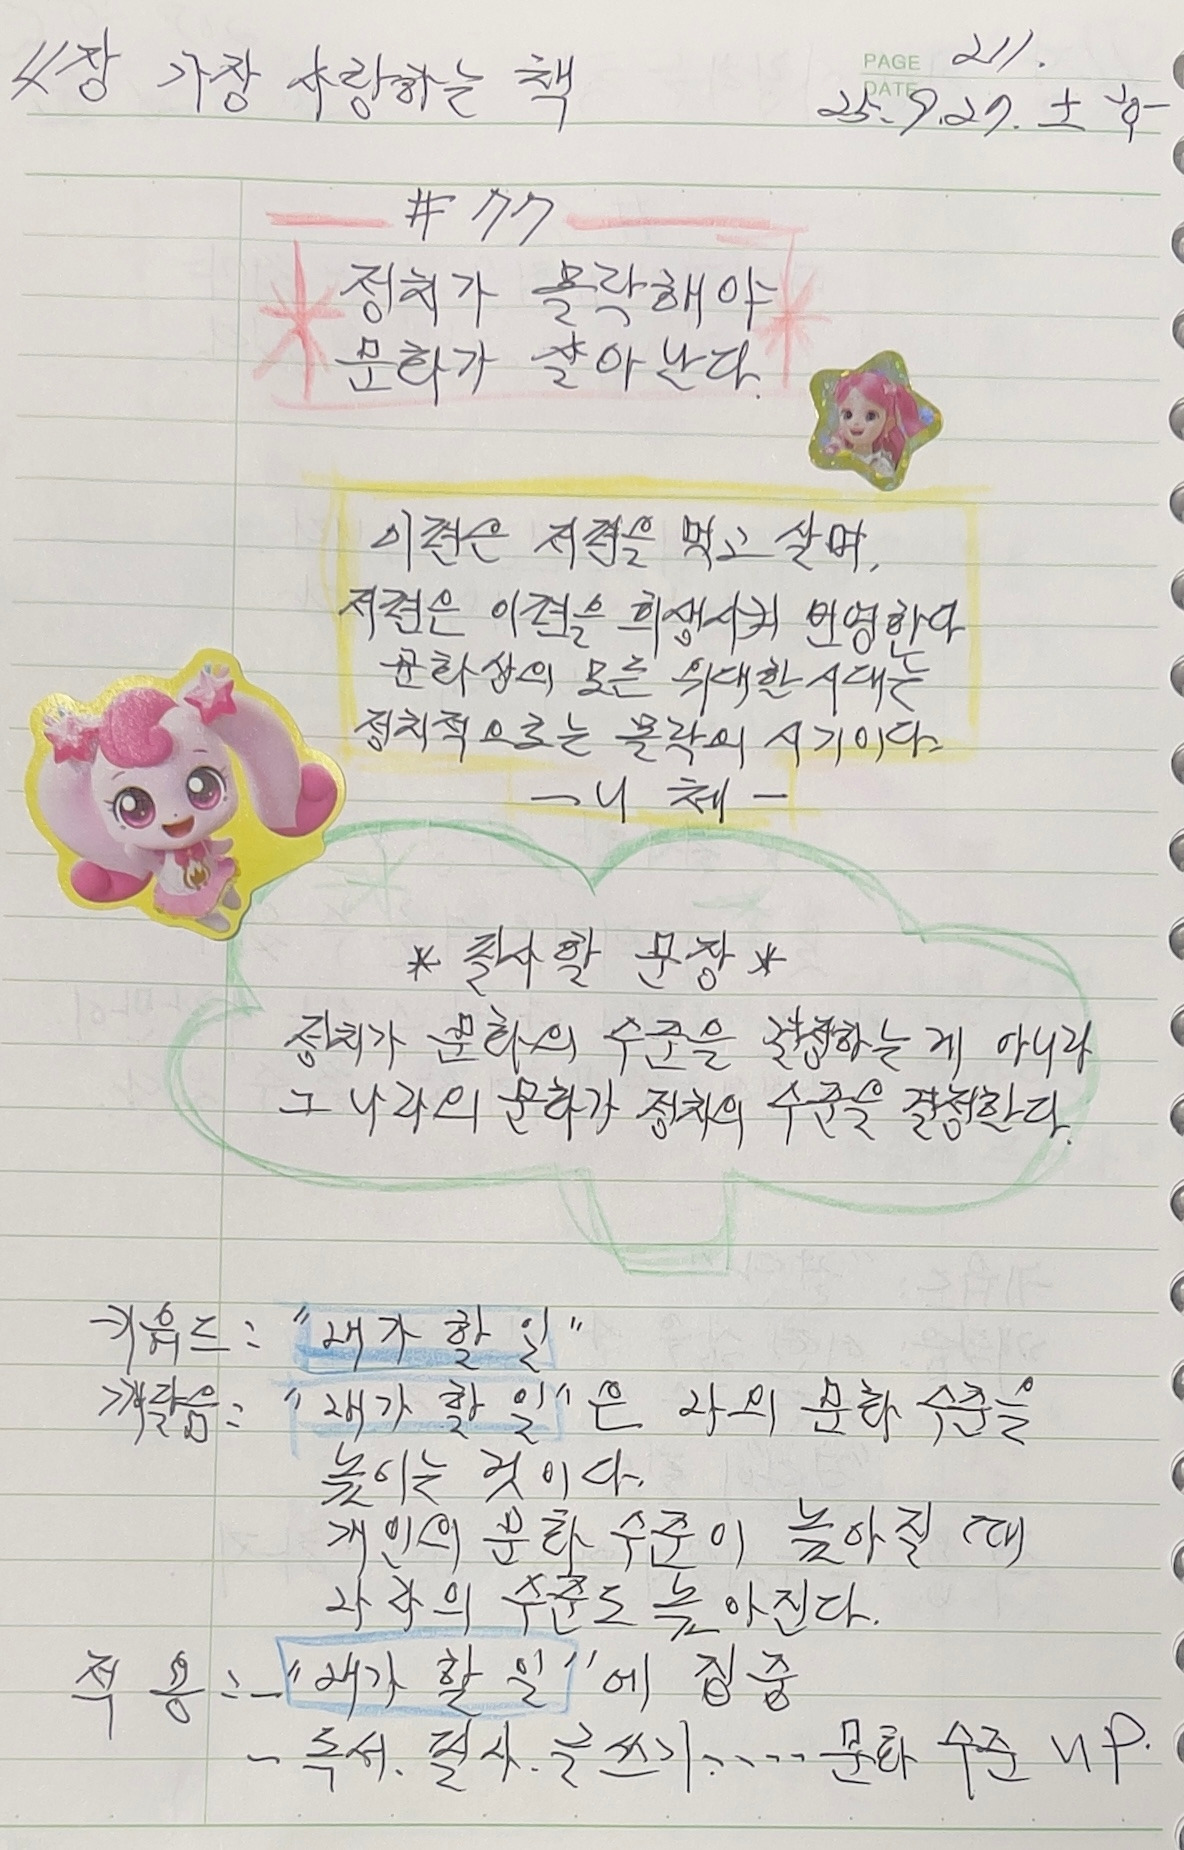 4장 가장 사랑하는 책
PAGE 211.
DATE 25.9.27. 土
#77
정치가 몰락해야
문화가 살아난다.
이편은 저편을 먹고 살며,
저편은 이편을 희생시켜 번영한다
문화상의 모든 위대한 시대는
정치적으로는 몰락의 시기이다.
- 니체 -
* 필사할 문장 *
정치가 문화의 수준을 결정하는 게 아니라
그 나라의 문화가 정치의 수준을 결정한다.
키워드: "내가 할 일"
깨달음: "내가 할 일"은 나의 문화 수준을
높이는 것이다.
개인의 문화 수준이 높아질 때
나라의 수준도 높아진다.
적용: - "내가 할 일"에 집중
- 독서. 필사. 글쓰기..... 문화 수준 UP.